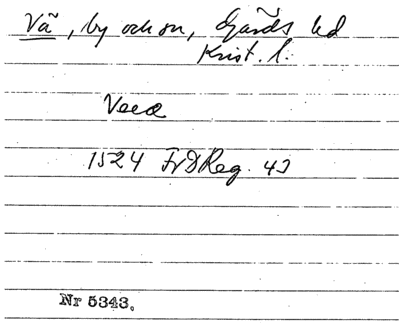 Vä, by och sn, Gärds hd
Krist. l.
Veea
1524 FrDReg. 43
Nr 5343.